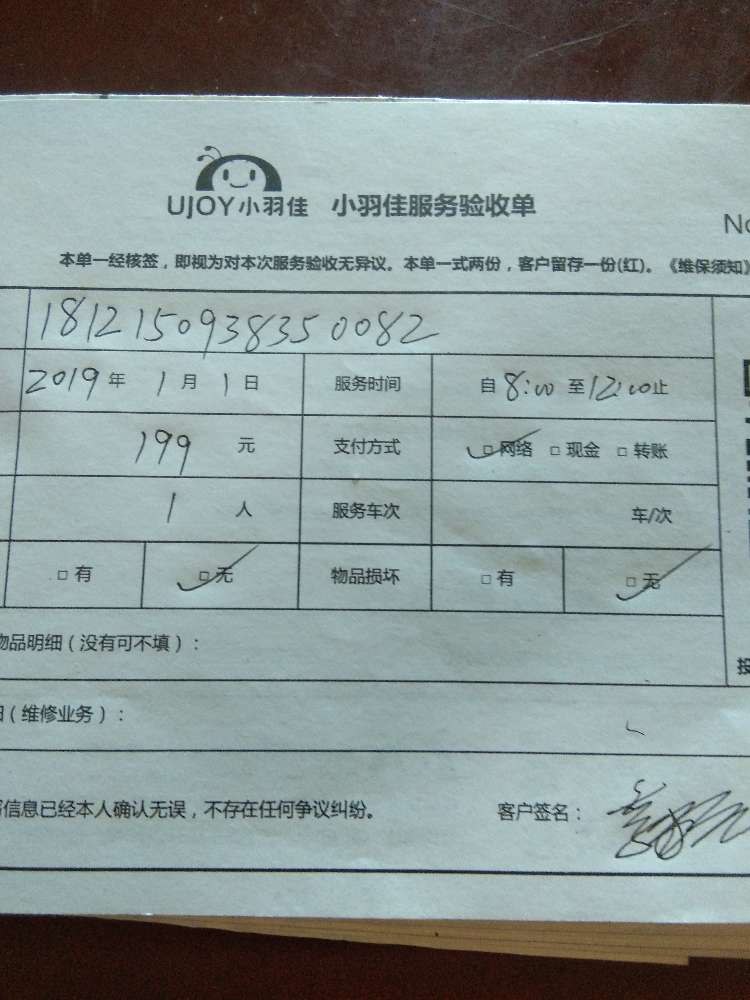 UJOY小羽佳 小羽佳服务验收单
No
本单一经核签，即视为对本次服务验收无异议。本单一式两份，客户留存一份(红)。《维保须知》
1812150938350082
2019年1月1日 服务时间 自8:00至12:00止
199元 支付方式 □网络 □现金 □转账
1人 服务车次 车/次
□有 □无 物品损坏 □有 □无
物品明细（没有可不填）：
（维修业务）：
信息已经本人确认无误，不存在任何争议纠纷。 客户签名：